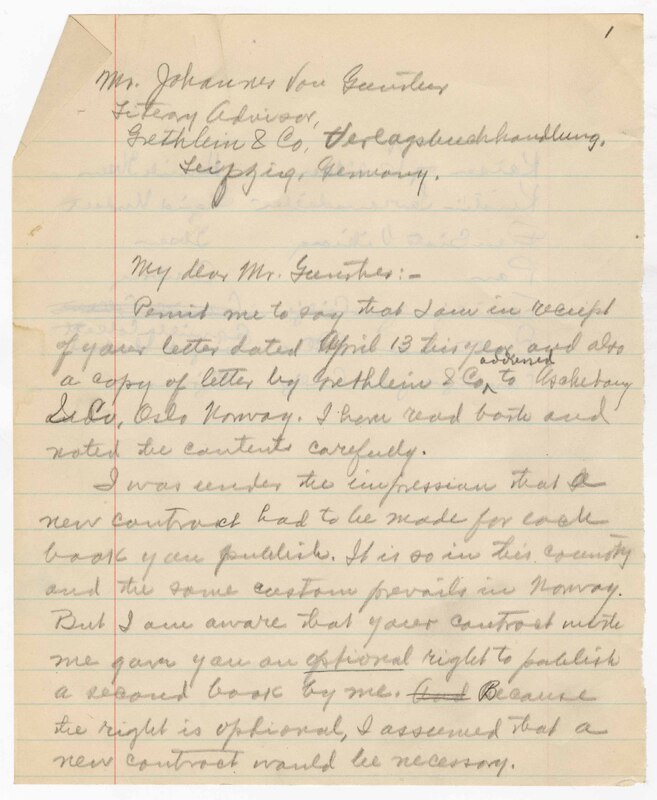 1
Mr. Johannes Von Guenther
Literary Advisor,
Grethlein & Co, Verlagsbuchhandlung.
Leipzig, Germany.
My dear Mr. Guenther:-
Permit me to say that I am in receipt
of your letter dated April 13 this year and also
addressed
a copy of letter by Grethlein & Co, to Aschehoug
& Co, Oslo Norway. I have read both and
noted the contents carefully.
I was under the impression that a
new contract had to be made for each
book you publish. It is so in this country
and the same custom prevails in Norway.
But I am aware that your contract with
me gave you an optional right to publish
a second book by me. And Because
the right is optional, I assumed that a
new contract would be necessary.